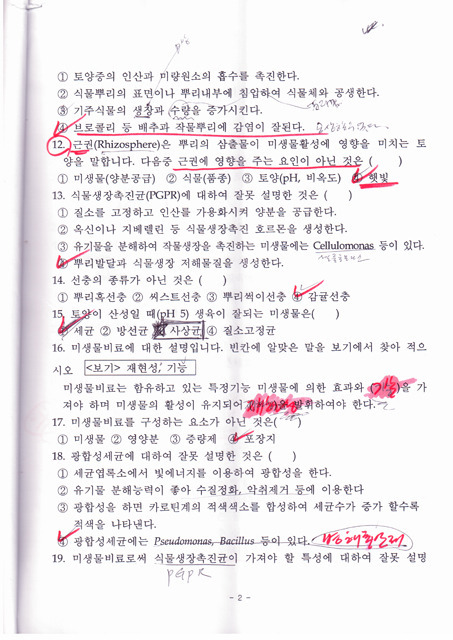 ① 토양중의 인산과 미량원소의 흡수를 촉진한다.
② 식물뿌리의 표면이나 뿌리내부에 침입하여 식물체와 공생한다.
③ 기주식물의 생장과 수량을 증가시킨다.
④ 브로콜리 등 배추과 작물뿌리에 감염이 잘된다.
12. 근권(Rhizosphere)은 뿌리의 삼출물이 미생물활성에 영향을 미치는 토
양을 말합니다. 다음중 근권에 영향을 주는 요인이 아닌 것은 ( )
① 미생물(양분공급) ② 식물(품종) ③ 토양(pH, 비옥도) ④ 햇빛
13. 식물생장촉진균(PGPR)에 대하여 잘못 설명한 것은 ( )
① 질소를 고정하고 인산를 가용화시켜 양분을 공급한다.
② 옥신이나 지베렐린 등 식물생장촉진 호르몬을 생성한다.
③ 유기물을 분해하여 작물생장을 촉진하는 미생물에는 Cellulomonas 등이 있다.
④ 뿌리발달과 식물생장 저해물질을 생성한다.
14. 선충의 종류가 아닌 것은 ( )
① 뿌리혹선충 ② 씨스트선충 ③ 뿌리썩이선충 ④ 감귤선충
15. 토양이 산성일 때(pH 5) 생육이 잘되는 미생물은( )
① 세균 ② 방선균 ③ 사상균 ④ 질소고정균
16. 미생물비료에 대한 설명입니다. 빈칸에 알맞은 말을 보기에서 찾아 적으
시오 <보기> 재현성, 기능
미생물비료는 함유하고 있는 특정기능 미생물에 의한 효과와 (기능)을 가
져야 하며 미생물의 활성이 유지되어 발휘하여야 한다.
17. 미생물비료를 구성하는 요소가 아닌 것은( )
① 미생물 ② 영양분 ③ 증량제 ④ 포장지
18. 광합성세균에 대하여 잘못 설명한 것은 ( )
① 세균엽록소에서 빛에너지를 이용하여 광합성을 한다.
② 유기물 분해능력이 좋아 수질정화, 악취제거 등에 이용한다
③ 광합성을 하면 카로틴계의 적색색소를 합성하여 세균수가 증가 할수록
적색을 나타낸다.
④ 광합성세균에는 Pseudomonas, Bacillus 등이 있다.
19. 미생물비료로써 식물생장촉진균이 가져야 할 특성에 대하여 잘못 설명
PGPR
- 2 -